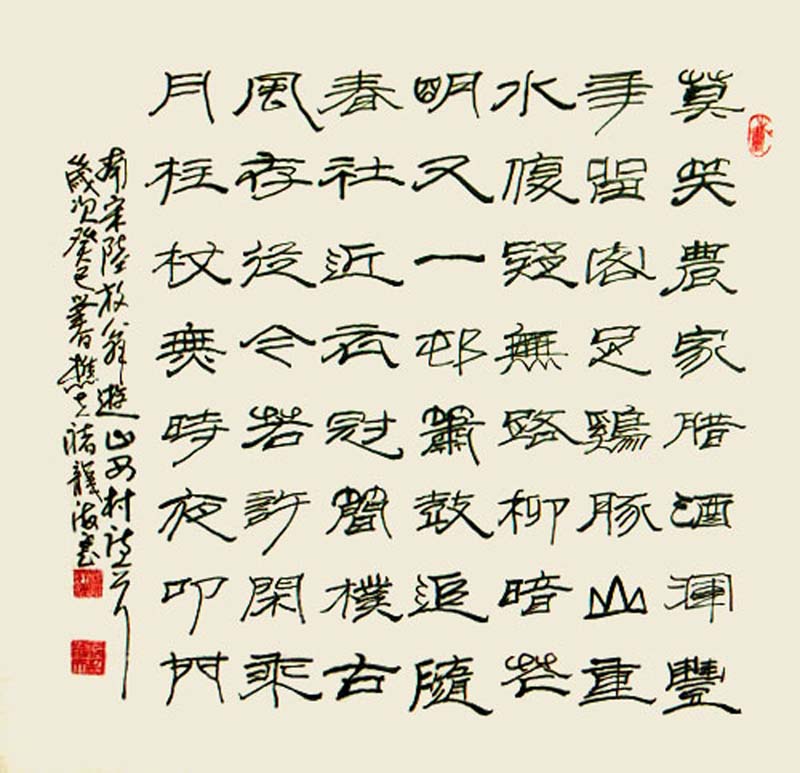 莫笑農家腊酒渾豐
年留客足鷄豚山重
水復疑無路柳暗花
明又一邨簫鼓追隨
春社近衣冠簡樸古
風存從今若許閑乘
月柱杖無時夜叩門
南宋陸放翁遊山西村詩一首
歲次癸巳暮春樵夫褚龍海書